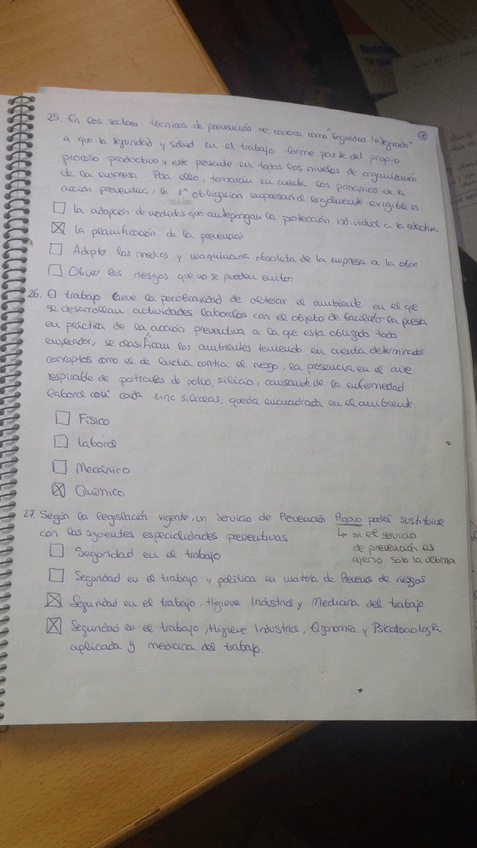 25. En los sectores técnicos de prevención se conoce como "Seguridad Integrada"
a que la seguridad y salud en el trabajo forme parte del propio
proceso productivo y este presente en todos los niveles de organización
de la empresa. Para ello, tomando en cuenta los principios de la
acción preventiva, la 1ª obligación empresarial legalmente exigible es
☐ La adopción de medidas que antepongan la protección individual a la colectiva
☒ La planificación de la prevención
☐ Adoptar los medios y maquinaria obsoleta de la empresa a la
☐ Obviar los riesgos que no se pueden evitar
26. El trabajo tiene la peculiaridad de alterar el ambiente en el que
se desarrollan actividades laborales con el objeto de facilitar la puesta
en práctica de la acción preventiva a la que esta obligado todo
empleador, se clasifican los ambientes teniendo en cuenta determinados
conceptos como el de lucha contra el riesgo, la presencia en el aire
respirable de partículas de polvo, silicio, causante de la enfermedad
laboral silíceas, queda encuadrada en el ambiente
☐ Físico
☐ Laboral
☐ Mecánico
☒ Químico
27. Según la legislación vigente, un Servicio de Prevención Propio podrá sustituirse
con las siguientes especialidades preventivas
↳ si el servicio
de prevención es
ajeno solo la última
☐ Seguridad en el trabajo
☐ Seguridad en el trabajo y política en materia de de riesgos
☒ Seguridad en el trabajo, Higiene Industrial y Medicina del trabajo
☒ Seguridad en el trabajo, Higiene Industrial, Ergonomía y Psicosociología
aplicada y medicina del trabajo.